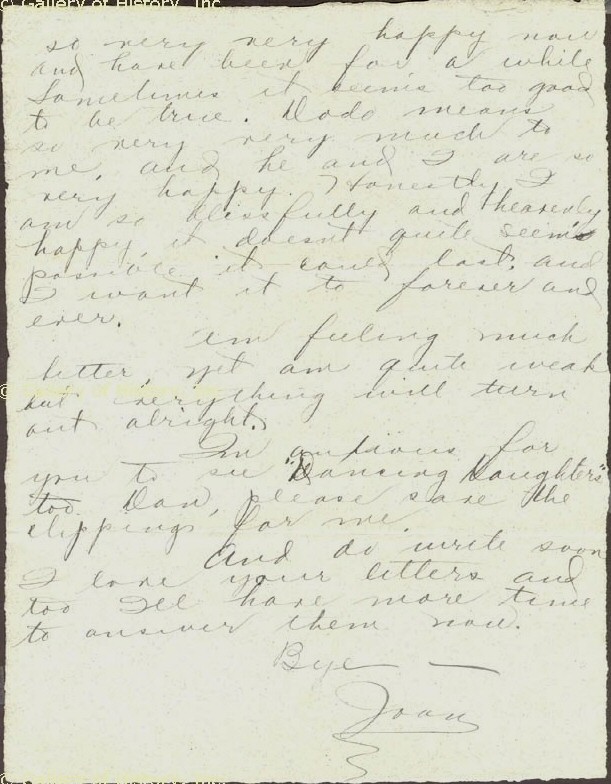 © Gallery of History, Inc.
so very very happy now
and have been for a while
Sometimes it seems too good
to be true. Dodo means
so very very much to
me, and he and I are so
very happy. Honestly I
am so blissfully and heavenly
happy, it doesn't quite seems
possible it could last, and
I want it to forever and
ever.
im feeling much
better, yet am quite weak
but everything will turn
out alright.
Im anxious for
you to see "Dancing Daughters"
too. Dan, please save the
clippings for me.
And do write soon
I love your letters and
too Ill have more time
to answer them now.
Bye —
Joan